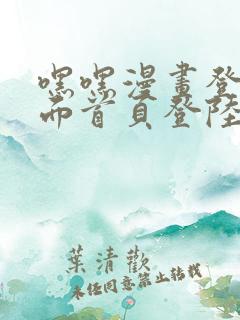 嘿嘿漫畫登
面首頁登陸
葉清歡
未經同意禁止轉載